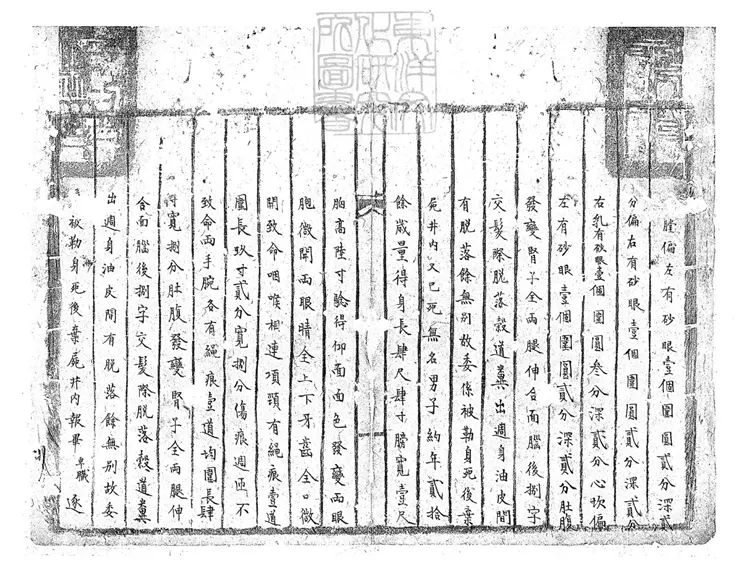 膛偏左有砂眼壹個圍圓貳分深貳
分偏右有砂眼壹個圍圓貳分深貳分
右乳有砂眼壹個圍圓叁分深貳分心坎偏
左有砂眼壹個圍圓貳分深貳分肚腹
發變腎子全兩腿伸合面腦後捌字
交髮際脫落穀道糞出週身油皮間
有脫落餘無別故委係被勒身死後棄
屍井內又已死無名男子約年貳拾
餘歲量得身長肆尺肆寸膀寬壹尺
胎高陸寸驗得仰面面色發變兩眼
胞微開兩眼睛全上下牙齒全口微
開致命咽喉相連項頸有繩痕壹道
圍長玖寸貳分寬捌分傷痕週匝不
致命兩手腕各有繩痕壹道均圍長肆
寸寬捌分肚腹發變腎子全兩腿伸
合面腦後捌字交髮際脫落穀道糞
出週身油皮間有脫落餘無別故委
被勒身死後棄屍井內報畢卑職遂